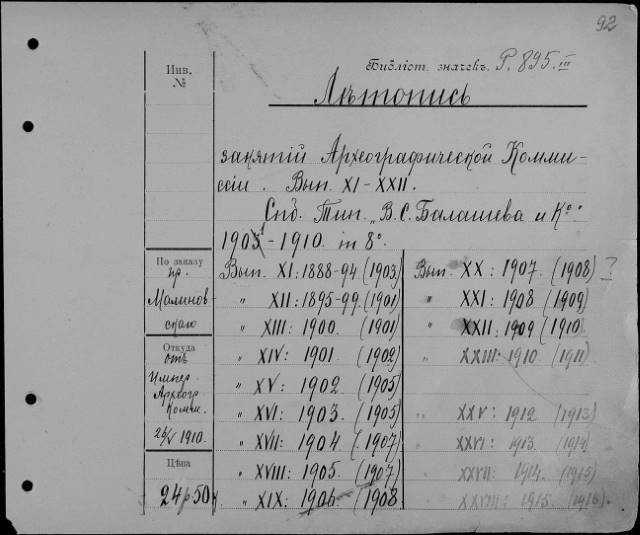 92
Инв.
№
Библіот. значекъ. P. 895. III
Лѣтопись
занятій Археографической Комми-
сіи. Вып. XI-XXII.
Спб. Тип. „В. С. Балашева и Кº."
1901-1910. in 8°.
По заказу
пр.
Малинов-
скаго
Откуда
отъ
Импер.
Археогр.
Комм.
26/V 1910.
Цѣна
24р50к
Вып. XI: 1888-94 (1903)
" XII: 1895-99. (1901)
" XIII: 1900. (1901)
" XIV: 1901. (1902)
" XV: 1902 (1905)
" XVI: 1903. (1905)
" XVII: 1904 (1907)
" XVIII: 1905. (1907)
" XIX: 1906 (1908
Вып. XX: 1907. (1908) ?
" XXI: 1908 (1909)
" XXII: 1909 (1910)
" XXIII: 1910 (1911)
" XXV: 1912 (1913)
" XXVI: 1913. (1914)
XXVII: 1914. (1915)
XXVIII: 1915. (1916).